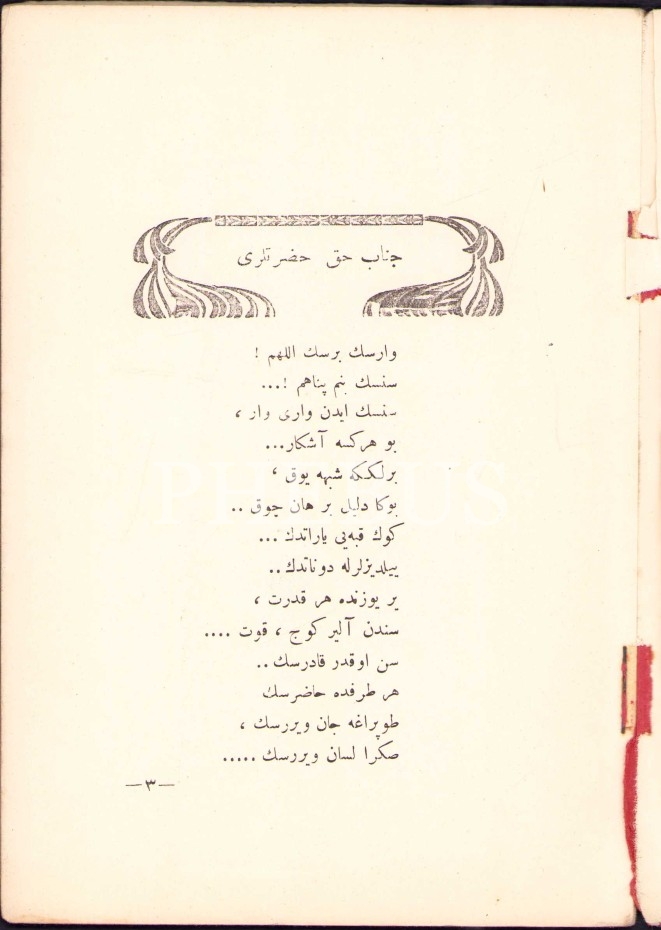 جناب حق حضرتلری
وارسك برسك اللهم !
سنسك بنم پناهم !...
سنسك ایدن واری وار ،
بو هركسه آشكار...
برلككه شبهه یوق ،
بوكا دلیل برهان چوق ..
كوك قبه‌یی یاراتدك ...
ییلدیزلرله دوناتدك..
یر یوزنده هر قدرت ،
سندن آلیر كوج ، قوت ....
سن اوقدر قادرسك..
هر طرفده حاضرسك
طوپراغه جان ویررسك ،
صكرا لسان ویررسك .....
—٣—